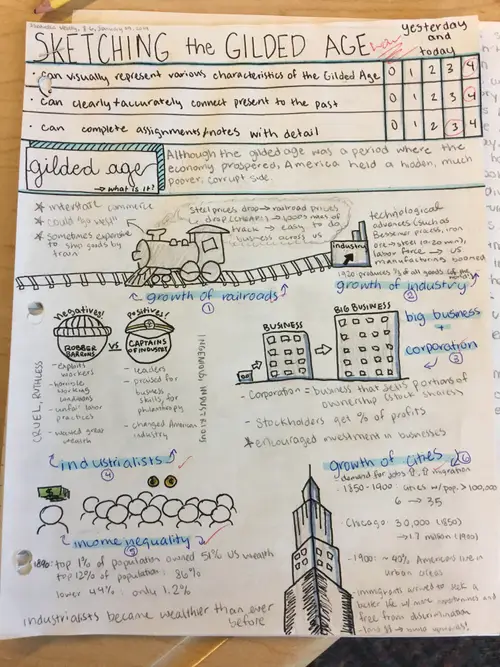 SKETCHING the GILDED AGE
yesterday
and
today
• can visually represent various characteristics of the Gilded Age 0 1 2 3 4
• can clearly + accurately connect present to the past 0 1 2 3 4
• can complete assignments/notes with detail 0 1 2 3 4
gilded age
→ what is it?
Although the gilded age was a period where the
economy prospered, America held a hidden, much
poorer, corrupt side.
* interstate commerce
* could "go west"
* sometimes expensive
to ship goods by
train
Steel prices drop → railroad prices
drop
track → easy to do
business across US
growth of railroads
①
industry
technological
advances (such as
Bessemer process, iron
→ US
manufacturing boomed
1920 produces 1/3 of all goods
growth of industry
②
Negatives!
ROBBER
BARRONS
vs
Positives!
CAPTAINS
OF INDUSTRY
CRUEL, RUTHLESS
- exploits
workers
- horrible
working
conditions
- unfair labor
practices
- wanted great
wealth
- leaders
- provided for
business
skills, for
philanthropy
- changed American
industry
INGENIOUS, INDUSTRIOUS
industrialists
④
BUSINESS
BIG BUSINESS
big business
+
corporation
③
- Corporation = business that sells portions of
ownership (stock shares)
- Stockholders get % of profits
* encouraged investment in businesses
income inequality
⑤
1890: top 1% of population owned 51% US wealth
top 12% of population: 86%
lower 44%: only 1.2%
industrialists became wealthier than ever
before
growth of cities
⑥
demand for jobs ↑, ↑ migration
- 1850-1900: cities w/ pop. > 100,000
6 → 35
- Chicago: 30,000 (1850)
→ 1.7 million (1900)
- 1900: ~ 40% Americans live in
urban areas
- immigrants arrived to seek a
better life w/ more opportunities and
free from discrimination